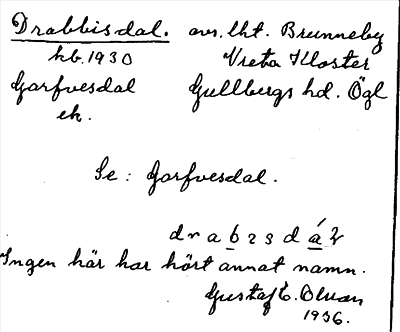 Drabbisdal. avs. lht. Brunneby
hb. 1930 Vreta Kloster
Garfvesdal Gullbergs hd. Ögl
ek.
Se: Garfvesdal.
Ingen här har hört annat namn.
Gustaf E. Olvan
1936.